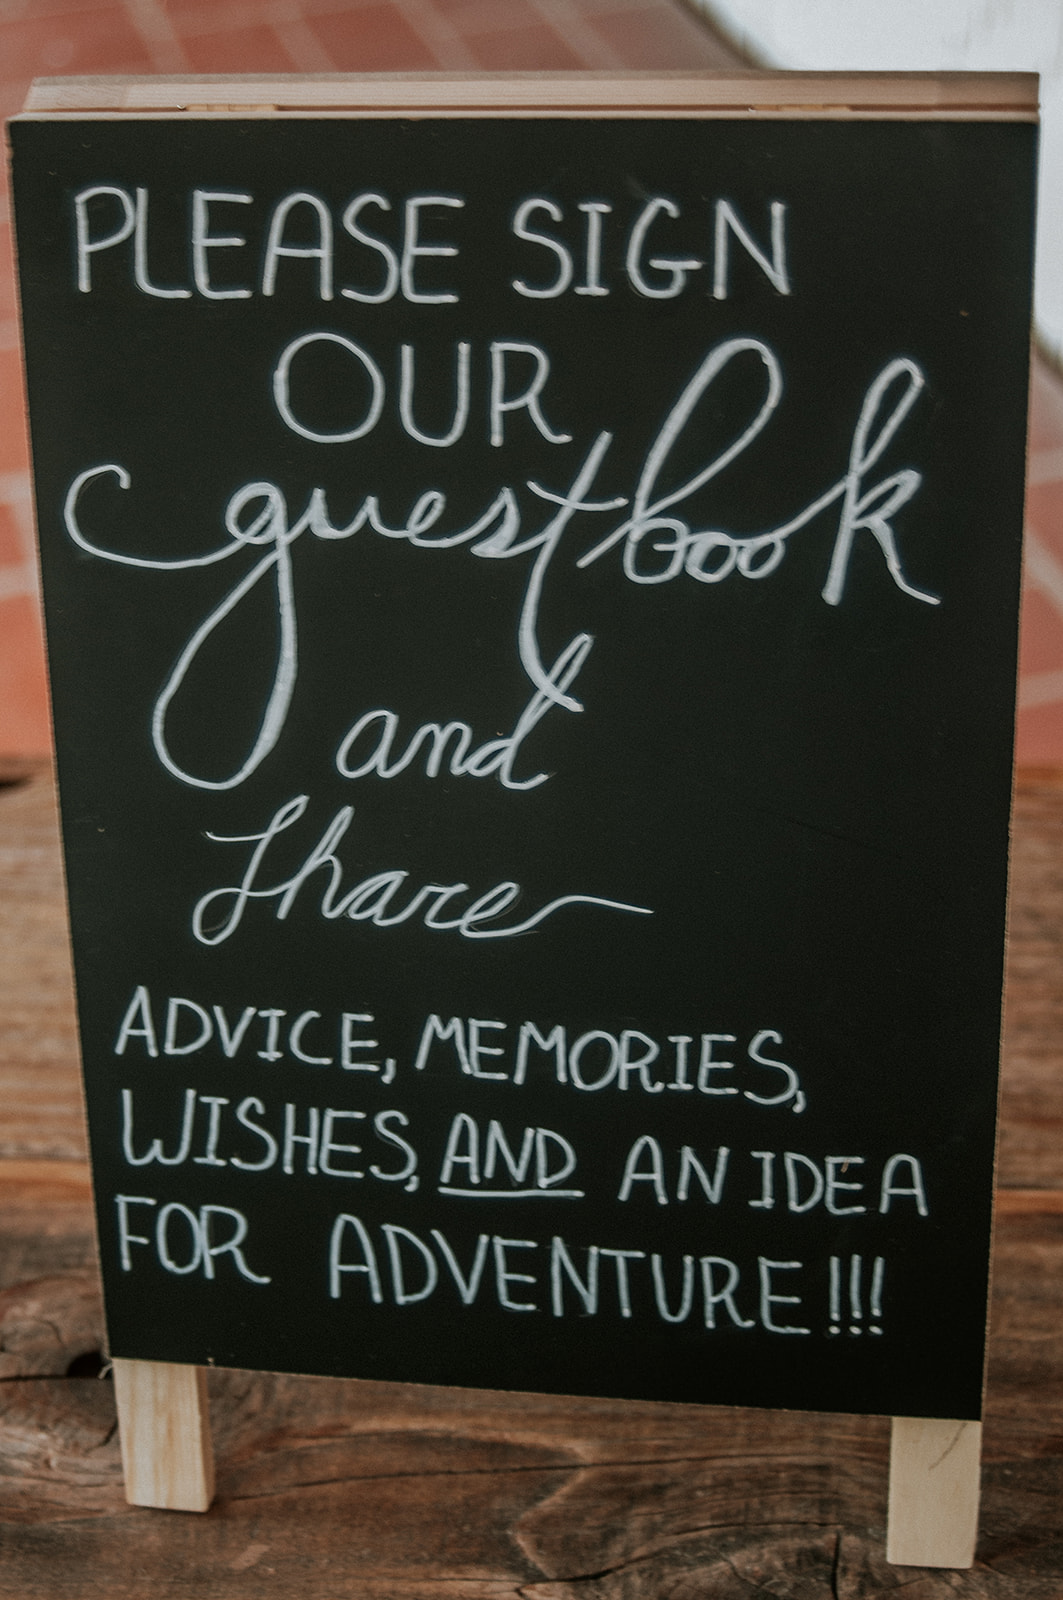 PLEASE SIGN
OUR
guestbook
and
Share
ADVICE, MEMORIES,
WISHES, AND AN IDEA
FOR ADVENTURE!!!